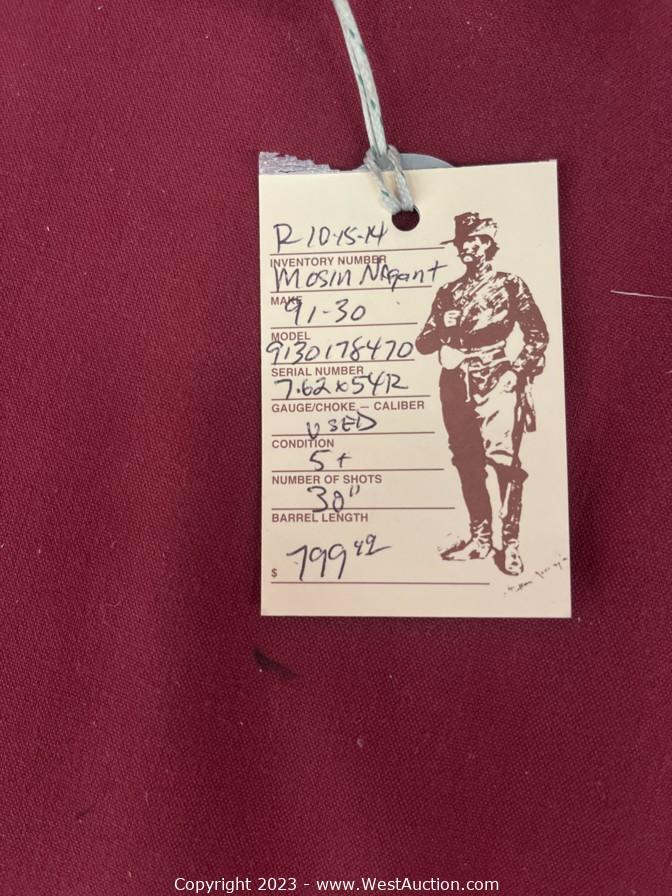 R 10-15-14
INVENTORY NUMBER
Mosin Nagant
MAKE
91-30
MODEL
9130178470
SERIAL NUMBER
7.62x54R
GAUGE/CHOKE — CALIBER
USED
CONDITION
5+
NUMBER OF SHOTS
30"
BARREL LENGTH
$ 799 49
Copyright 2023 - www.WestAuction.com